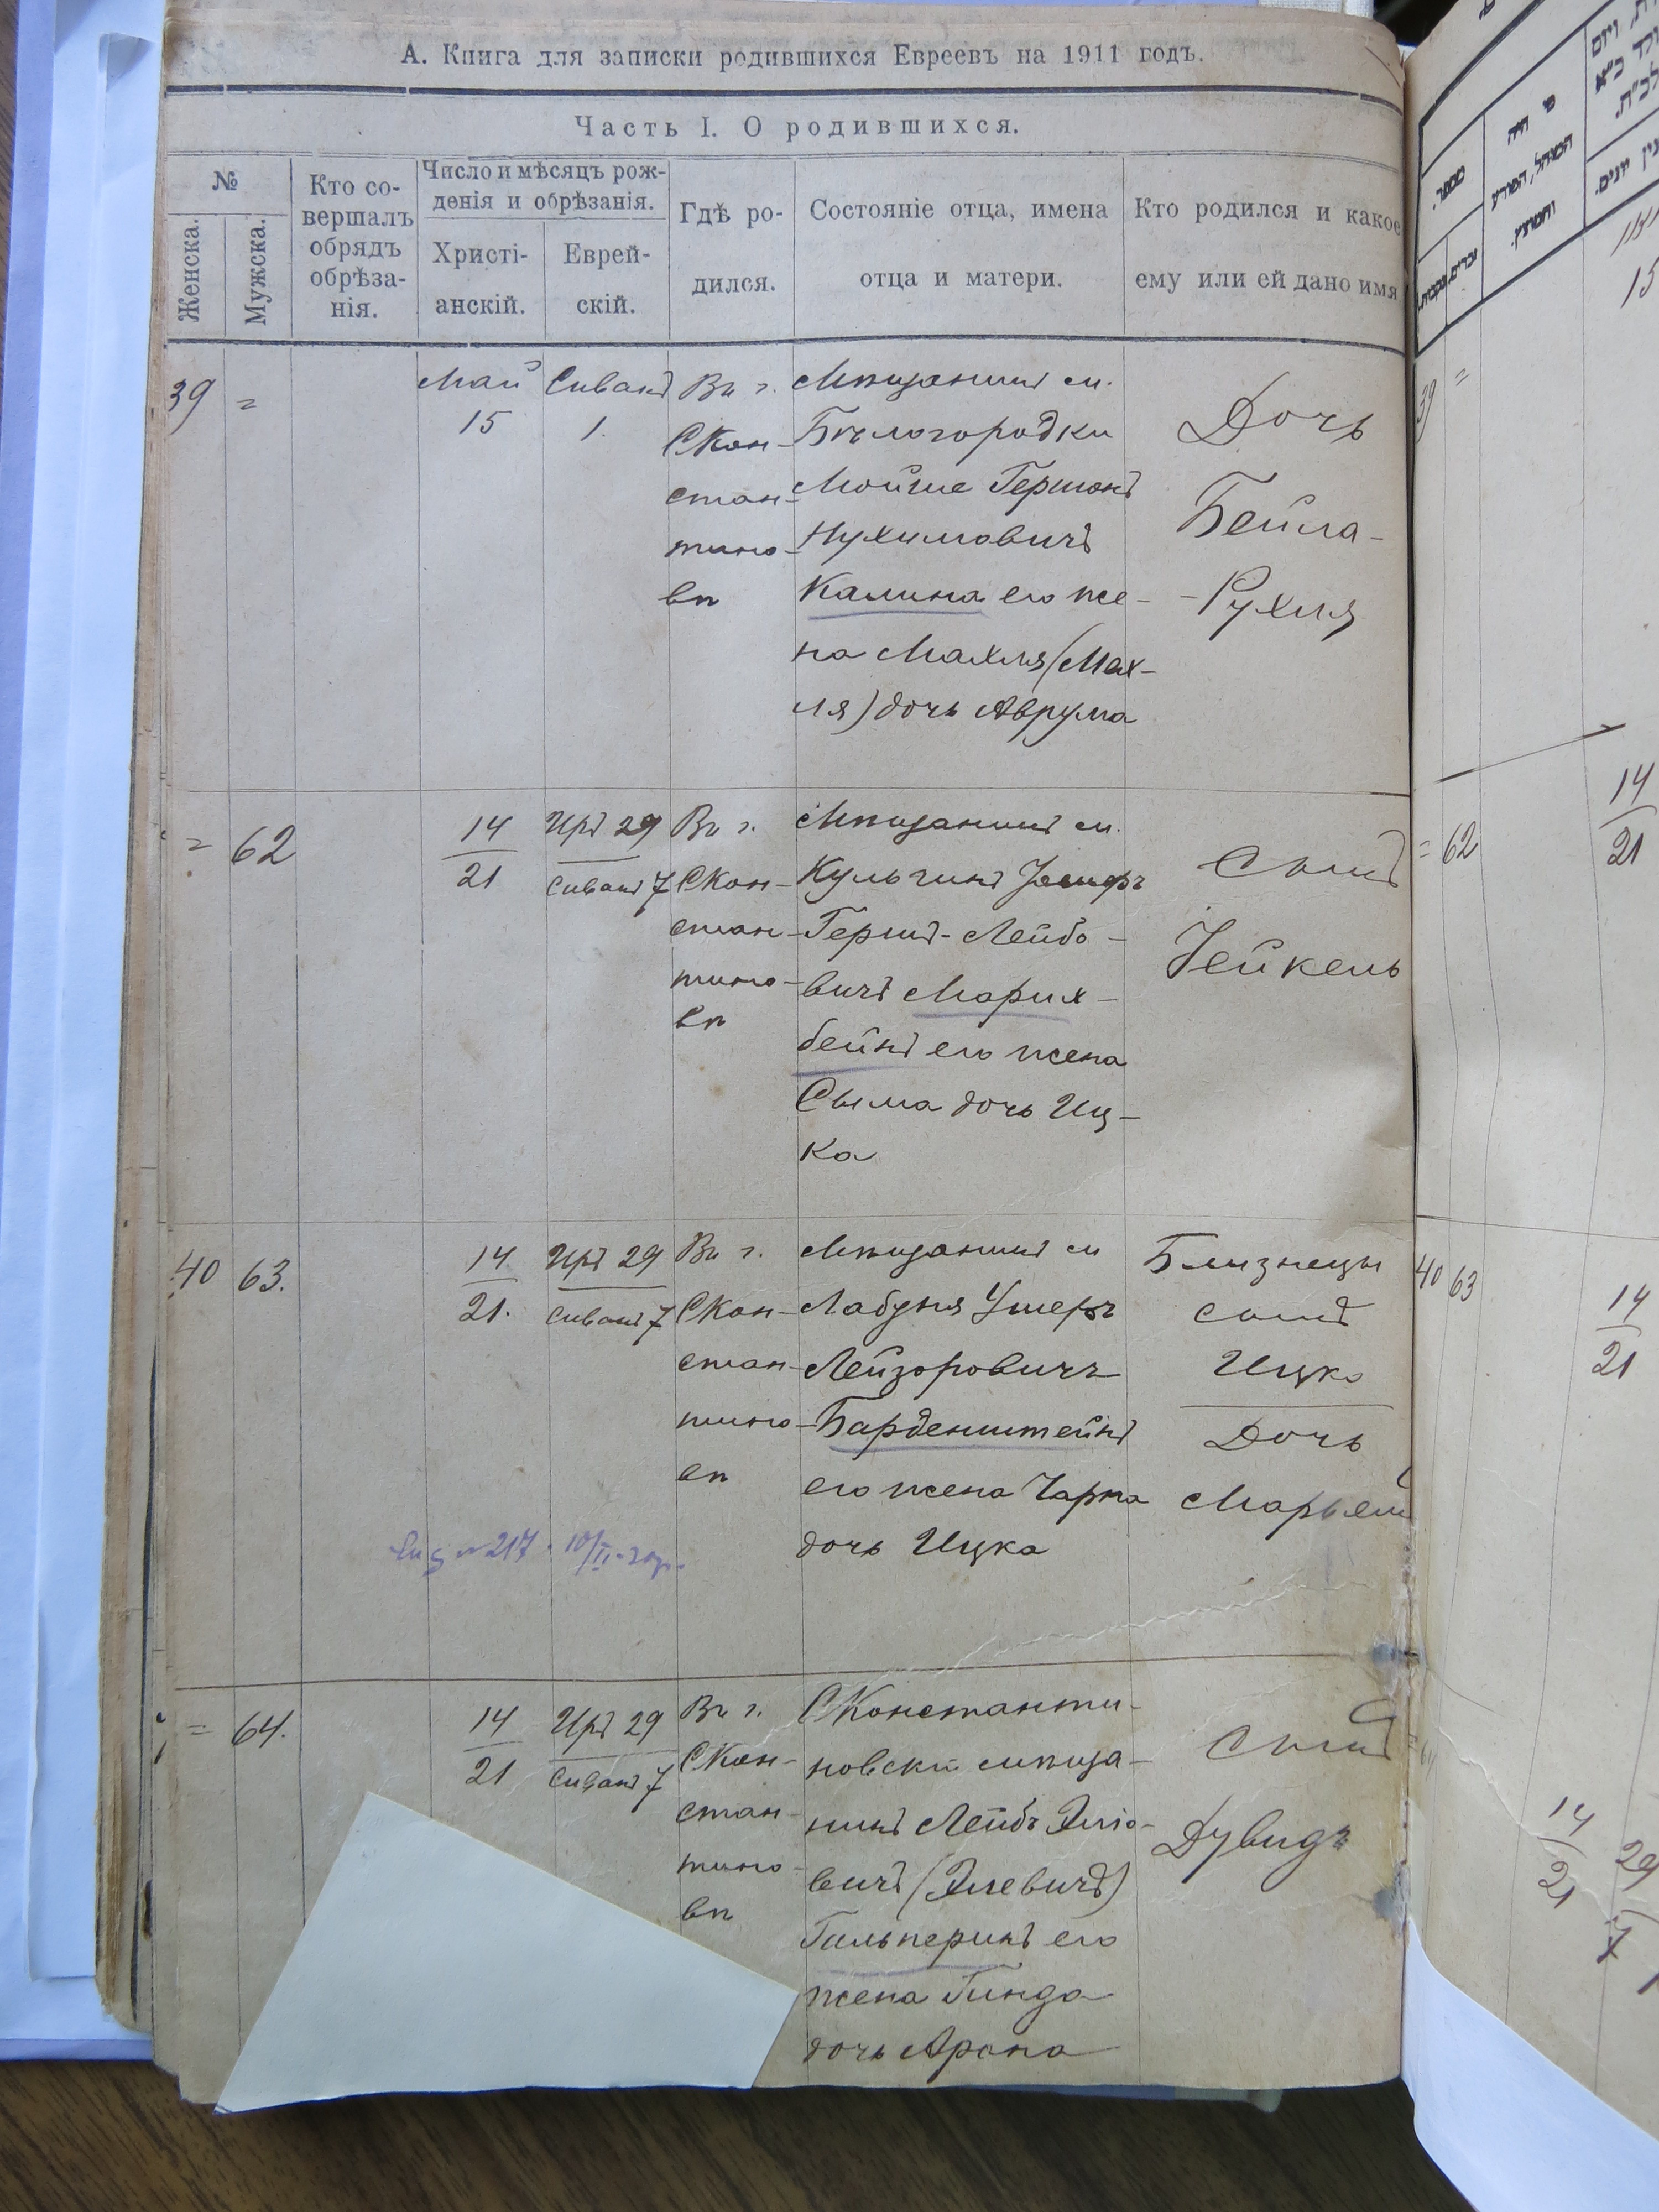 А. Книга для записки родившихся Евреевъ на 1911 годъ.
Часть I. О родившихся.
№
Женска.
Мужска.
Кто со-
вершалъ
обрядъ
обрѣза-
нія.
Число и мѣсяцъ рож-
денія и обрѣзанія.
Христі-
анскій.
Еврей-
скій.
Гдѣ ро-
дился.
Состояніе отца, имена
отца и матери.
Кто родился и какое
ему или ей дано имя
39
=
Май
15
Сиванъ
1.
Въ г.
СКон-
стан-
тино-
вѣ
Мѣщанинъ м.
Бѣлогородки
Мойше Гершонъ
Нухимовичъ
Калина его же-
на Махля (Мах-
ля) дочь Аврума
Дочь
Бейла-
-Рухля
= 62
14
21
Иръ 29
Сиванъ 7
Въ г.
СКон-
стан-
тино-
вѣ
Мѣщанинъ м.
Кульчинъ
Гершъ-Лейбо-
вичъ Марих-
бейнъ его жена
Сыма дочь Иц-
ка
Сынъ
Уейкель
40 63.
14
21.
Иръ 29
Сиванъ 7
Въ г.
СКон-
стан-
тино-
вѣ
Мѣщанинъ м
Лабуня Ушеръ
Лейзоровичъ
Барденштейнъ
его жена Чарна
дочь Ицка
Близнецы
сынъ
Ицко
Дочь
Марьям
№ 217. 10/II
= 64.
14
21
Иръ 29
Сиванъ 7
Въ г.
СКон-
стан-
тино-
вѣ
СКонстанти-
новскій мѣща-
нинъ Лейбъ Эліо-
вичъ (Элевичъ)
Гальперинъ его
жена Гинда
дочь Арона
Сынъ
Дувидъ
מספר.
זכרים.
נקבות.
39 =
15
= 62
14
21
40 63
14
21
14
21
29
7